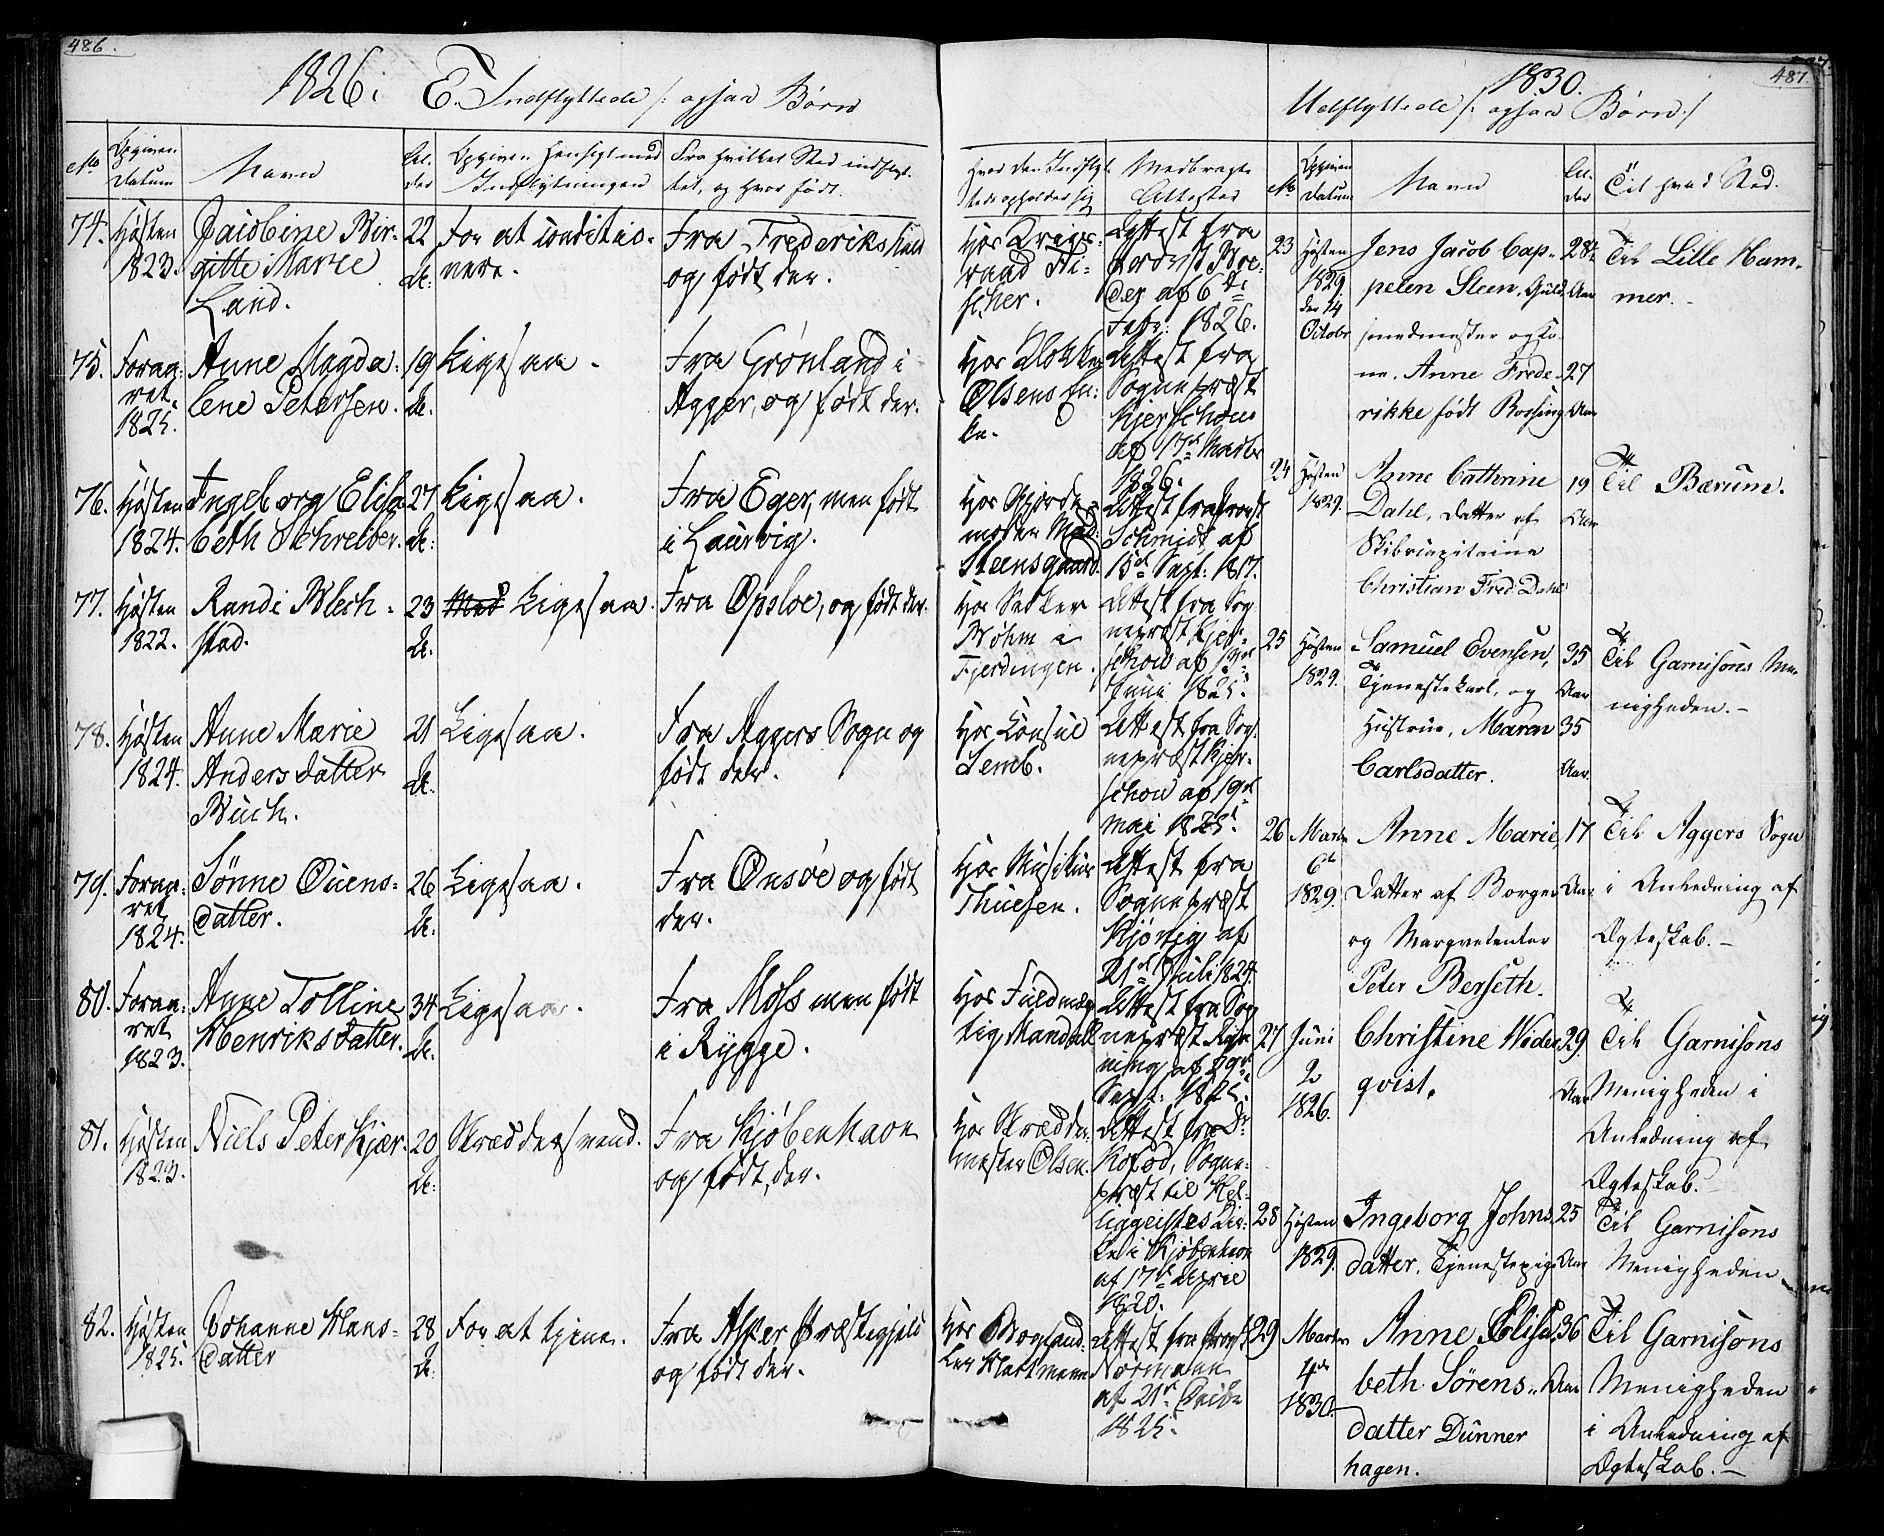 486.
1826. E. Indflyttede /: ogsaa Børn
No
Opgiven Datum
Navn
Al-
der
Opgiven Hensigt med
Indflytningen
Fra hvilket Sted indflyt-
tet, og hvor født.
Hvor den Indflyt-
tede opholder sig
Medbragte
Attester
74. Høsten 1823.
Jacobine Bir-
gitte Marie
Land.
22 A:
For at conditio-
nere.
Fra Frederikshald
og født der.
Hos Krigs-
raad Fi-
scher.
Attest fra
Provst
af 6te
Febr: 1826.
75. Foraa-
ret
1825.
Anne Magda-
lene Petersen.
19 A:
Ligesaa.
Fra Grønland i
Agger, og født der.
Hos Klokker
Olsens En-
ke.
Attest fra
Sognepræst
Kjerschow
af 17de Marts
1826.
76. Høsten
1824.
Ingeborg Elisa-
beth Schreiber.
27 A:
Ligesaa.
Fra Eger, men født
i Laurvig.
Hos Gjorde-
moder Mad:
Steensgaard.
Attest fra Provst
Schmidt af
15de Sept: 1817.
77. Høsten
1822.
Randi Blech-
stad.
23 A:
Med Ligesaa.
Fra Opsloe, og født der.
Hos
Bøhm i
Fjerdingen.
Attest fra Sog-
nepræst Kjer-
schow af
Juni 1825.
78. Høsten
1824.
Anne Marie
Andersdatter
Buch.
21 A:
Ligesaa.
Fra Aggers Sogn og
født der.
Hos Consul
Semb.
Attest fra Sog-
nepræst Kjer-
schow af 19de
Mai 1825.
79. Foraa-
ret
1824.
Sønne Ouens-
datter.
26 A:
Ligesaa.
Fra Onsøe og født
der.
Hos Musikus
Thuesen.
Attest fra
Sognepræst
Kjørig af
21de Juli 1824.
80. Foraa-
ret
1823.
Anne Tolline
Henriksdatter.
34 A:
Ligesaa.
Fra Moss men født
i Rygge.
Hos Fuldmæg-
tig Mandall
Attest fra Sog-
nepræst
af 29de
Sept: 1825.
81. Høsten
1823.
Niels Peter Kjær.
20 A:
Skræddersvend.
Fra Kjøbenhavn
og født der.
Hos Skrædder-
mester Olsen.
Attest fra Dr
Kofod, Sogne-
præst til Hel-
liggeistes Kir-
ke i Kjøbenhavn
af 17de April
1820.
82. Høsten
1825.
Johanne Hans-
datter
28 A:
For at tjene.
Fra Asker Præstegjeld
og født der.
Hos Boghand-
ler Hartmann
Attest fra Provst
Normann
af 21de Octbr
1825.
487
1830.
Udflyttede /: ogsaa Børn :/
No
Opgiven
Datum
Navn
Al-
der
Til hvad Sted.
23 Høsten
1829
den 14
October
Jens Jacob Cap-
pelen Steen, Guld-
smedmester og Ko-
ne, Anne Frede-
rikke født Rossing
28 Aar
27
Aar
Til Lille Ham-
mer.
24 Høsten
1829.
Anne Cathrine
Dahl, Datter af
Skibscapitaine
Christian Fred. Dahl
19
Aar
Til Bærum.
25 Høsten
1829.
Samuel Evensen,
Tjenestekarl, og
Hustrue, Maren
Carlsdatter.
35
Aar
35
Aar
Til Garnisons Me-
nigheden.
26 Marts
6te
1829.
Anne Marie,
Datter af Borger
og Marqvetenter
Peter Berseth.
17
Aar
Til Aggers Sogn
i Anledning af
Ægteskab.
27 Juni
2
1826.
Christine Wider-
qvist.
29
Aar
Til Garnisons
Menigheden i
Anledning af
Ægteskab.
28 Høsten
1829.
Ingeborg Johns
datter, Tjenestepige
25
Aar
Til Garnisons
Menigheden
29 Marts
4de
1830.
Anne Elisa-
beth Sørens-
datter Dünner
hagen.
36
Aar
Til Garnisons
Menigheden
i Anledning af
Ægteskab.